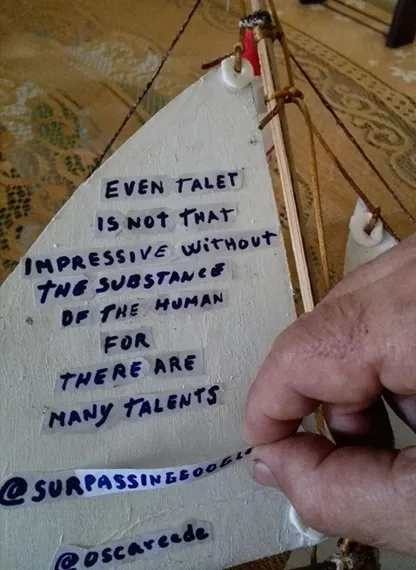 EVEN TALET
IS NOT THAT
IMPRESSIVE WITHOUT
THE SUBSTANCE
OF THE HUMAN
FOR
THERE ARE
MANY TALENTS
@SURPASSINGGOOGLE
@oscarcade